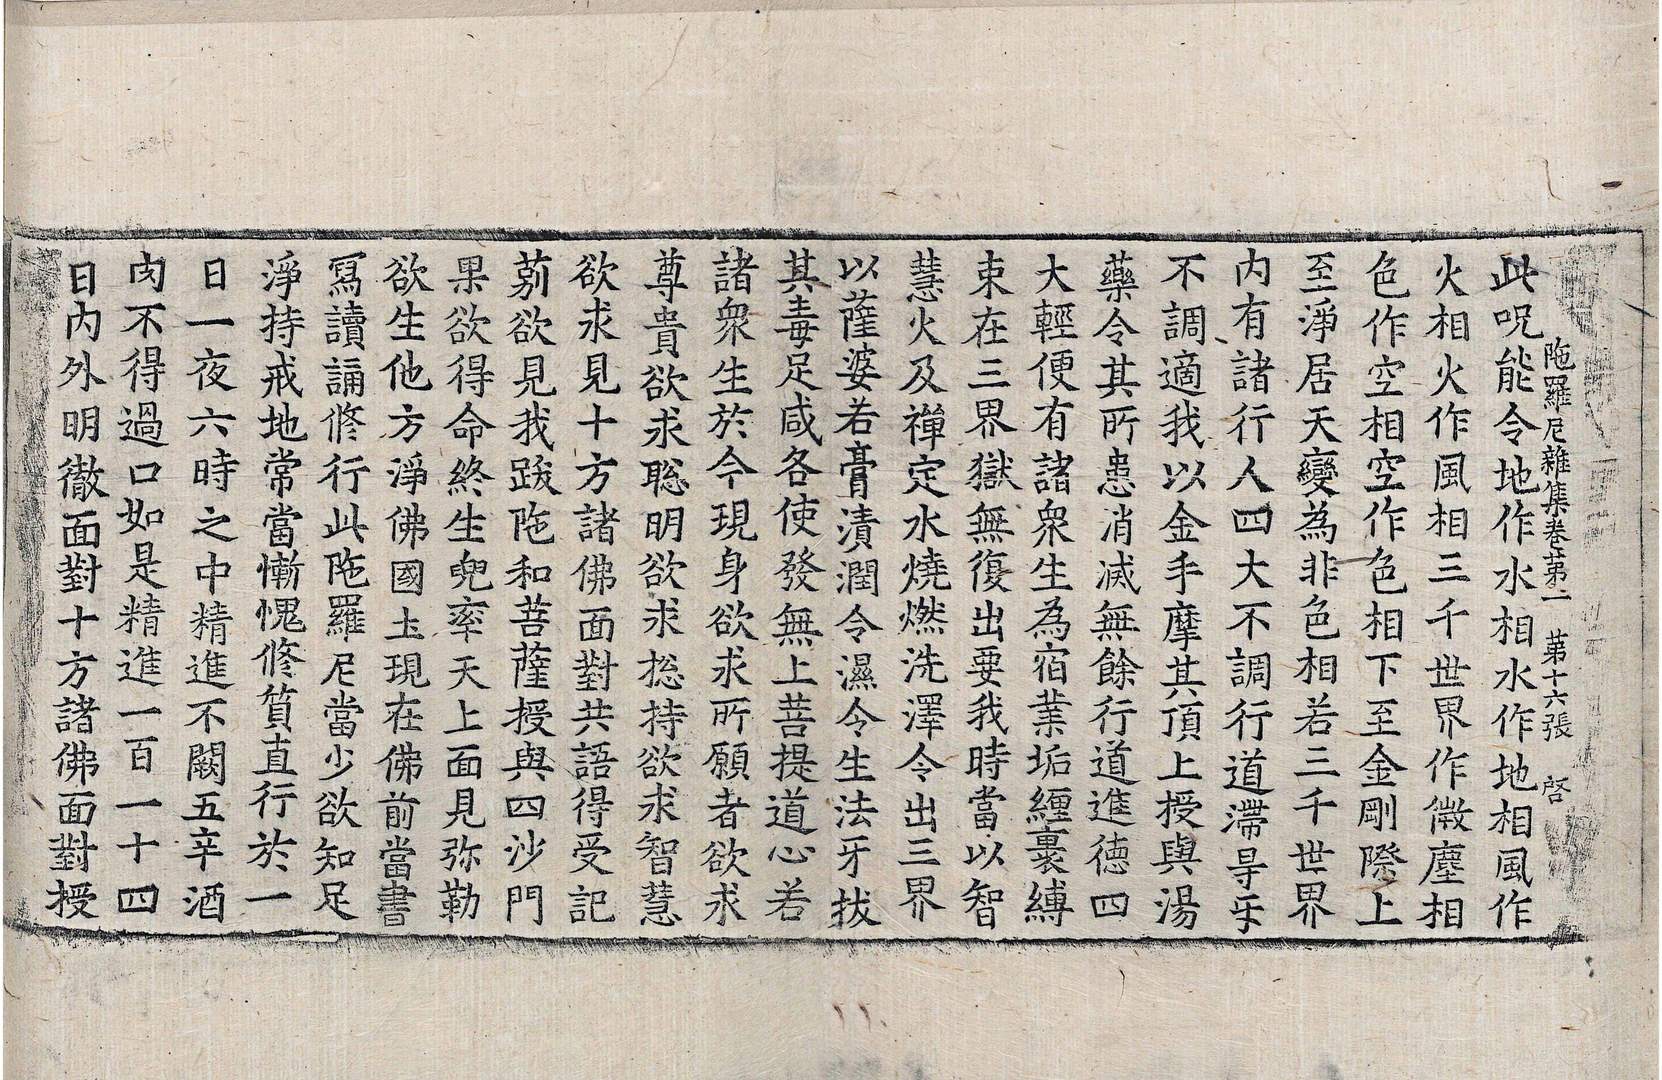 陁羅尼雜集卷第一　第十六張　啓
此呪能令地作水相水作地相風作
火相火作風相三千世界作微塵相
色作空相空作色相下至金剛際上
至淨居天變為非色相若三千世界
内有諸行人四大不調行道滯㝵牙
不調適我以金手摩其頂上授與湯
藥令其所患消滅無餘行道進徳四
大輕便有諸衆生為宿業垢纏裹縛
束在三界獄無復出要我時當以智
慧火及禪定水燒燃洗澤令出三界
以薩婆若膏漬潤令濕令生法牙拔
其毒足咸各使發無上菩提道心若
諸衆生於今現身欲求所願者欲求
尊貴欲求聡明欲求揔持欲求智慧
欲求見十方諸佛面對共語得受記
莂欲見我跋陁和菩薩授與四沙門
果欲得命終生兜率天上面見弥勒
欲生他方淨佛國土現在佛前當書
寫讀誦修行此陁羅尼當少欲知足
淨持戒地常當慚愧修質直行於一
日一夜六時之中精進不闕五辛酒
肉不得過口如是精進一百一十四
日内外明徹面對十方諸佛面對授